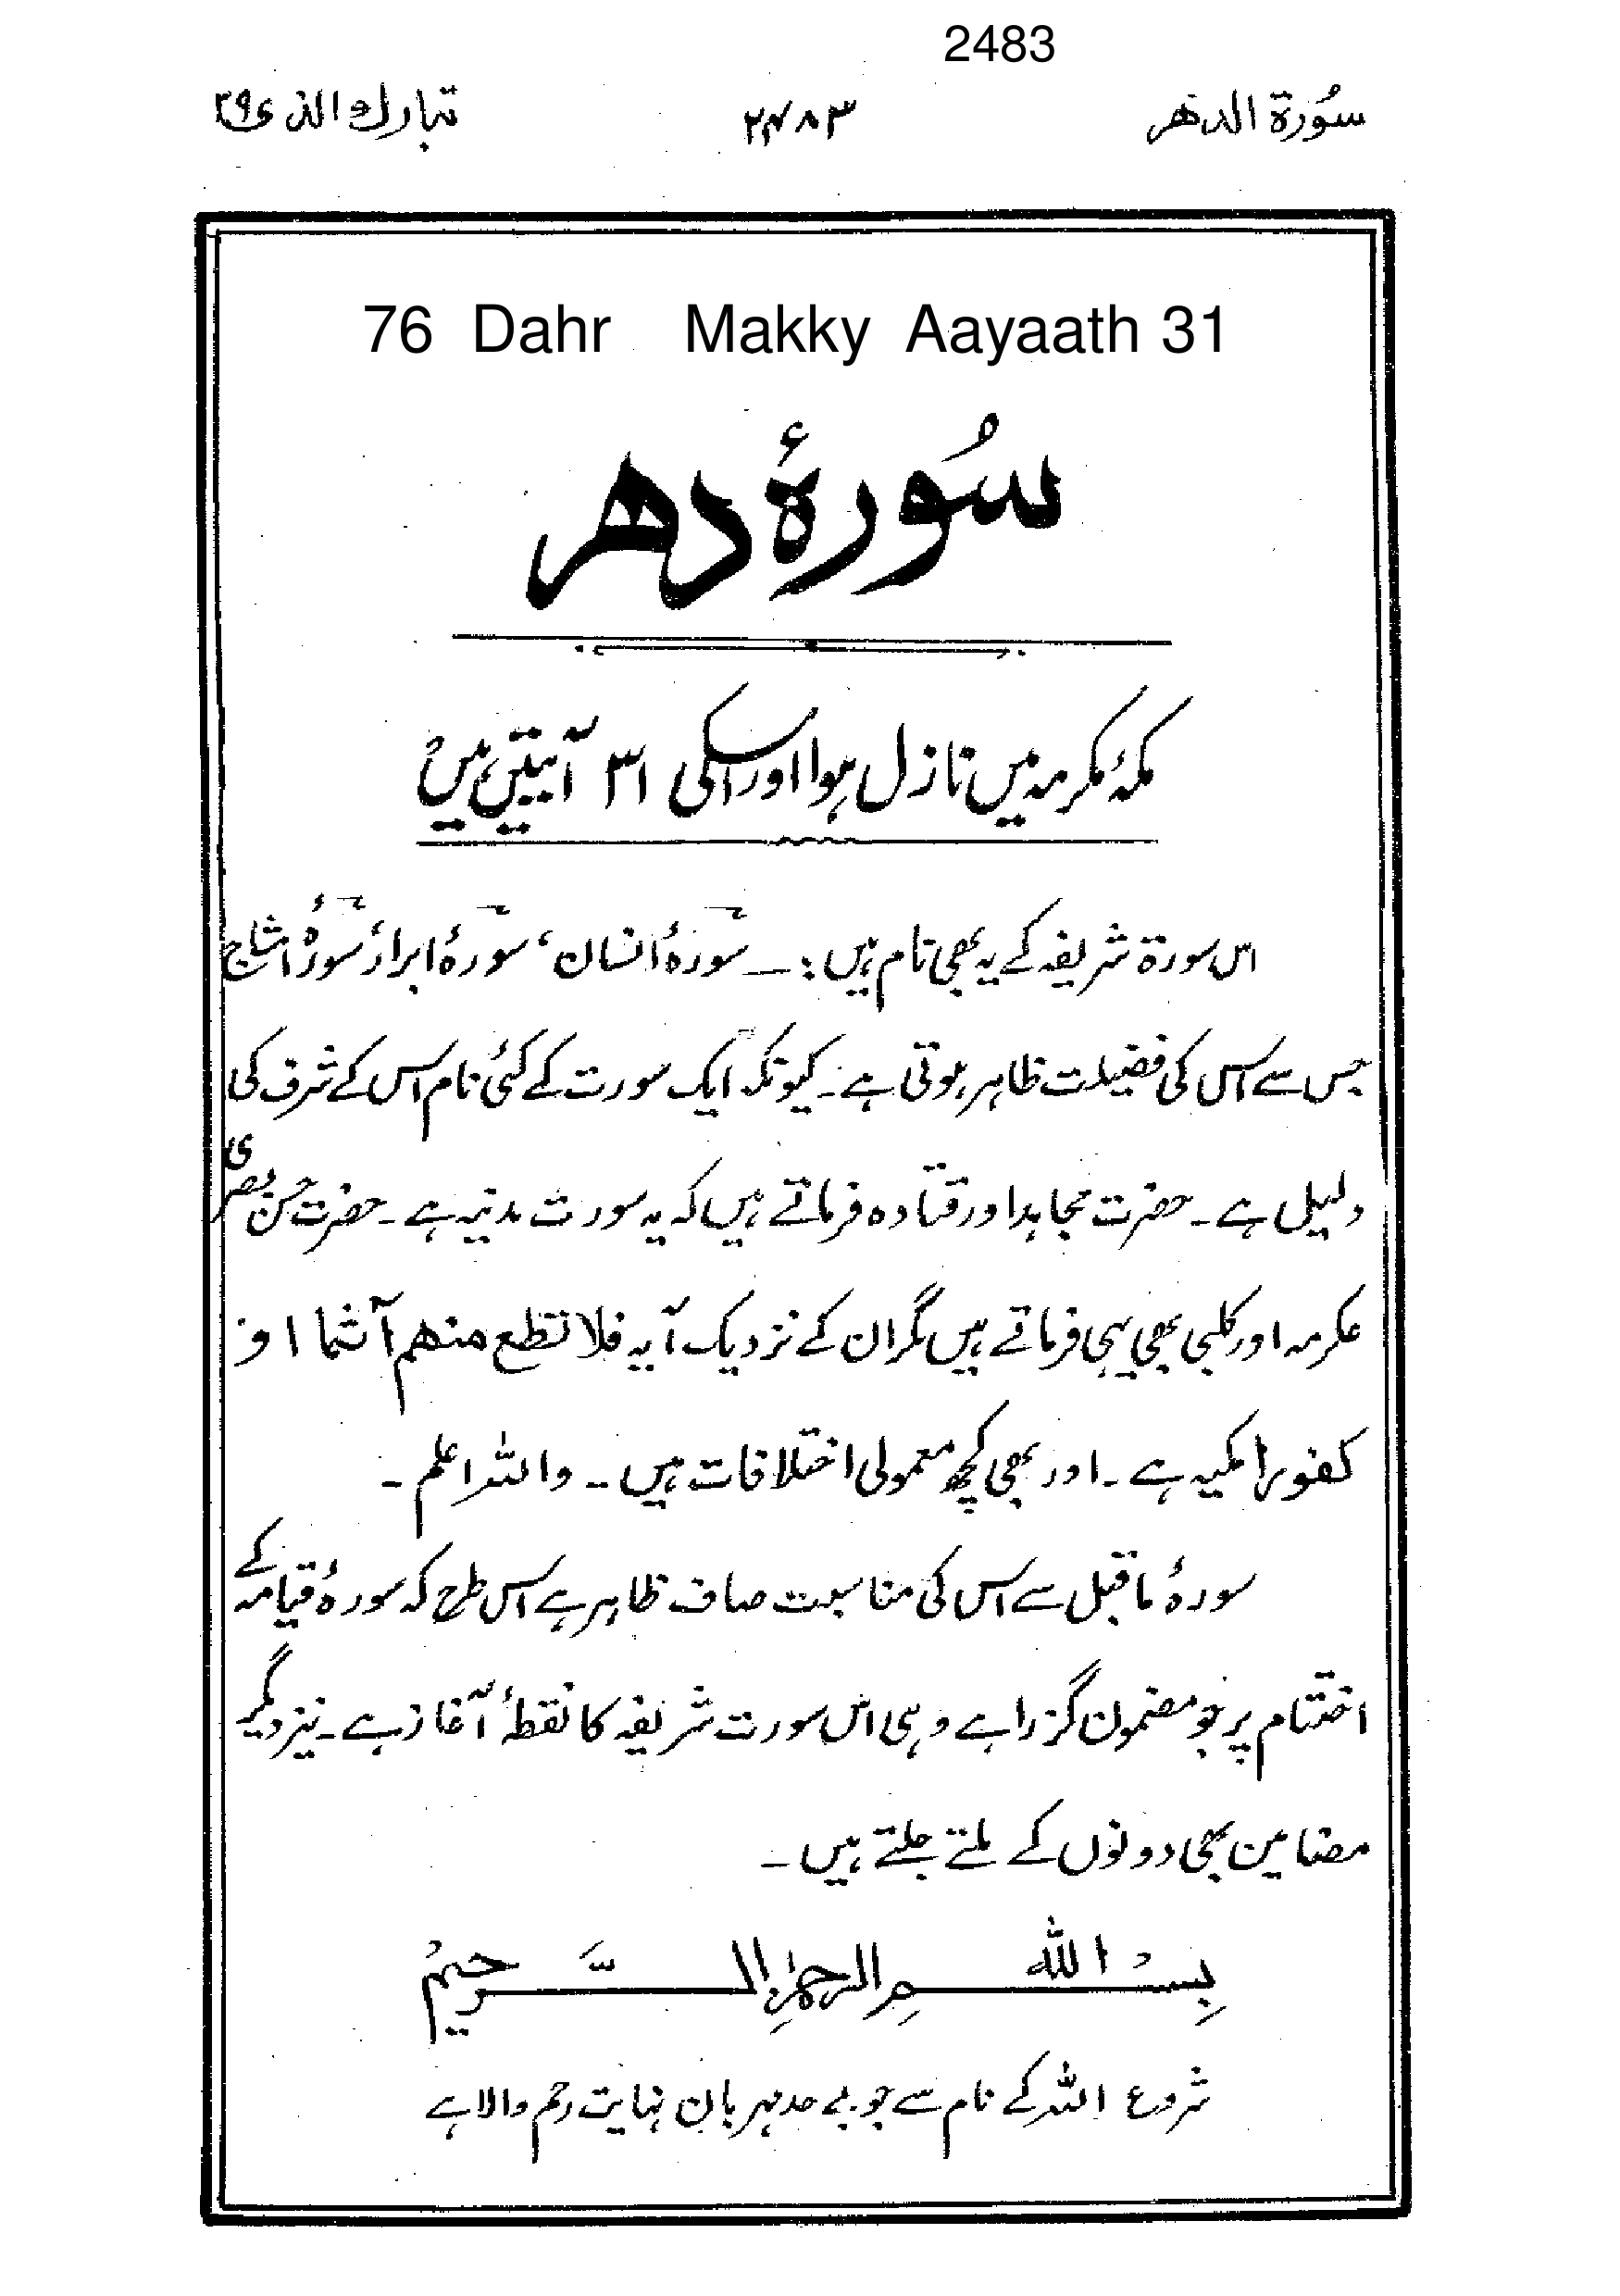 2483
سُورة الدهر ۲۴۸۳ تبارك الذی ۲۹
76 Dahr Makky Aayaath 31
سُورۂ دھر
مکۂ مکرمہ میں نازل ہوا اور اسکی ۳۱ آیتیں ہیں
اس سورۃ شریفہ کے یہ بھی نام ہیں :۔ سورۂ انسان، سورۂ ابرار، سورۂ امشاج
جس سے اس کی فضیلت ظاہر ہوتی ہے۔ کیونکہ ایک سورت کے کئی نام اس کے شرف کی
دلیل ہے۔ حضرت مجاہد اور قتادہ فرماتے ہیں کہ یہ سورت مدنیہ ہے۔ حضرت حسن بصری
عکرمہ اور کلبی بھی یہی فرماتے ہیں مگر ان کے نزدیک آیہ فلا تطع منھم آثما او
کفورا مکیہ ہے۔ اور بھی کچھ معمولی اختلافات ہیں۔ واللہ اعلم۔
سورۂ ماقبل سے اس کی مناسبت صاف ظاہر ہے اس طرح کہ سورۂ قیامہ کے
اختتام پر جو مضمون گزرا ہے وہی اس سورت شریفہ کا نقطۂ آغاز ہے۔ نیز دیگر
مضامین بھی دونوں کے ملتے جلتے ہیں۔
بِسْمِ اللهِ الرحمٰنِ الرَّحِيمْ
شروع اللہ کے نام سے جو بے حد مہربان نہایت رحم والا ہے